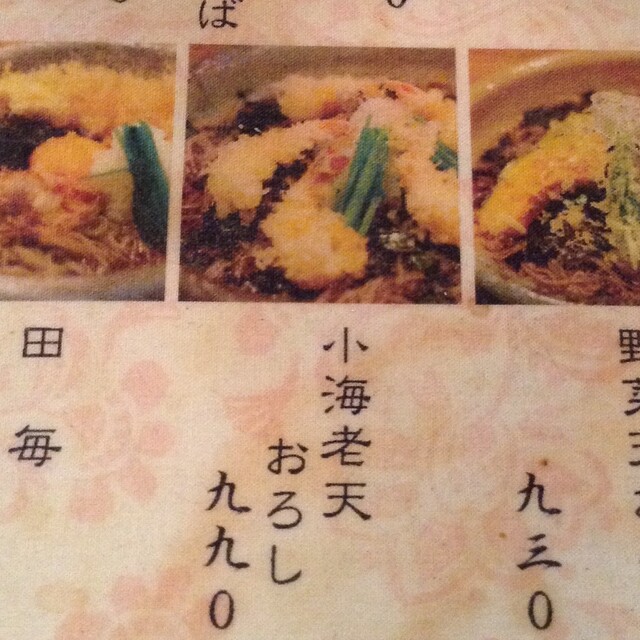 野菜天
九三〇
小海老天
おろし
九九〇
田毎
ば